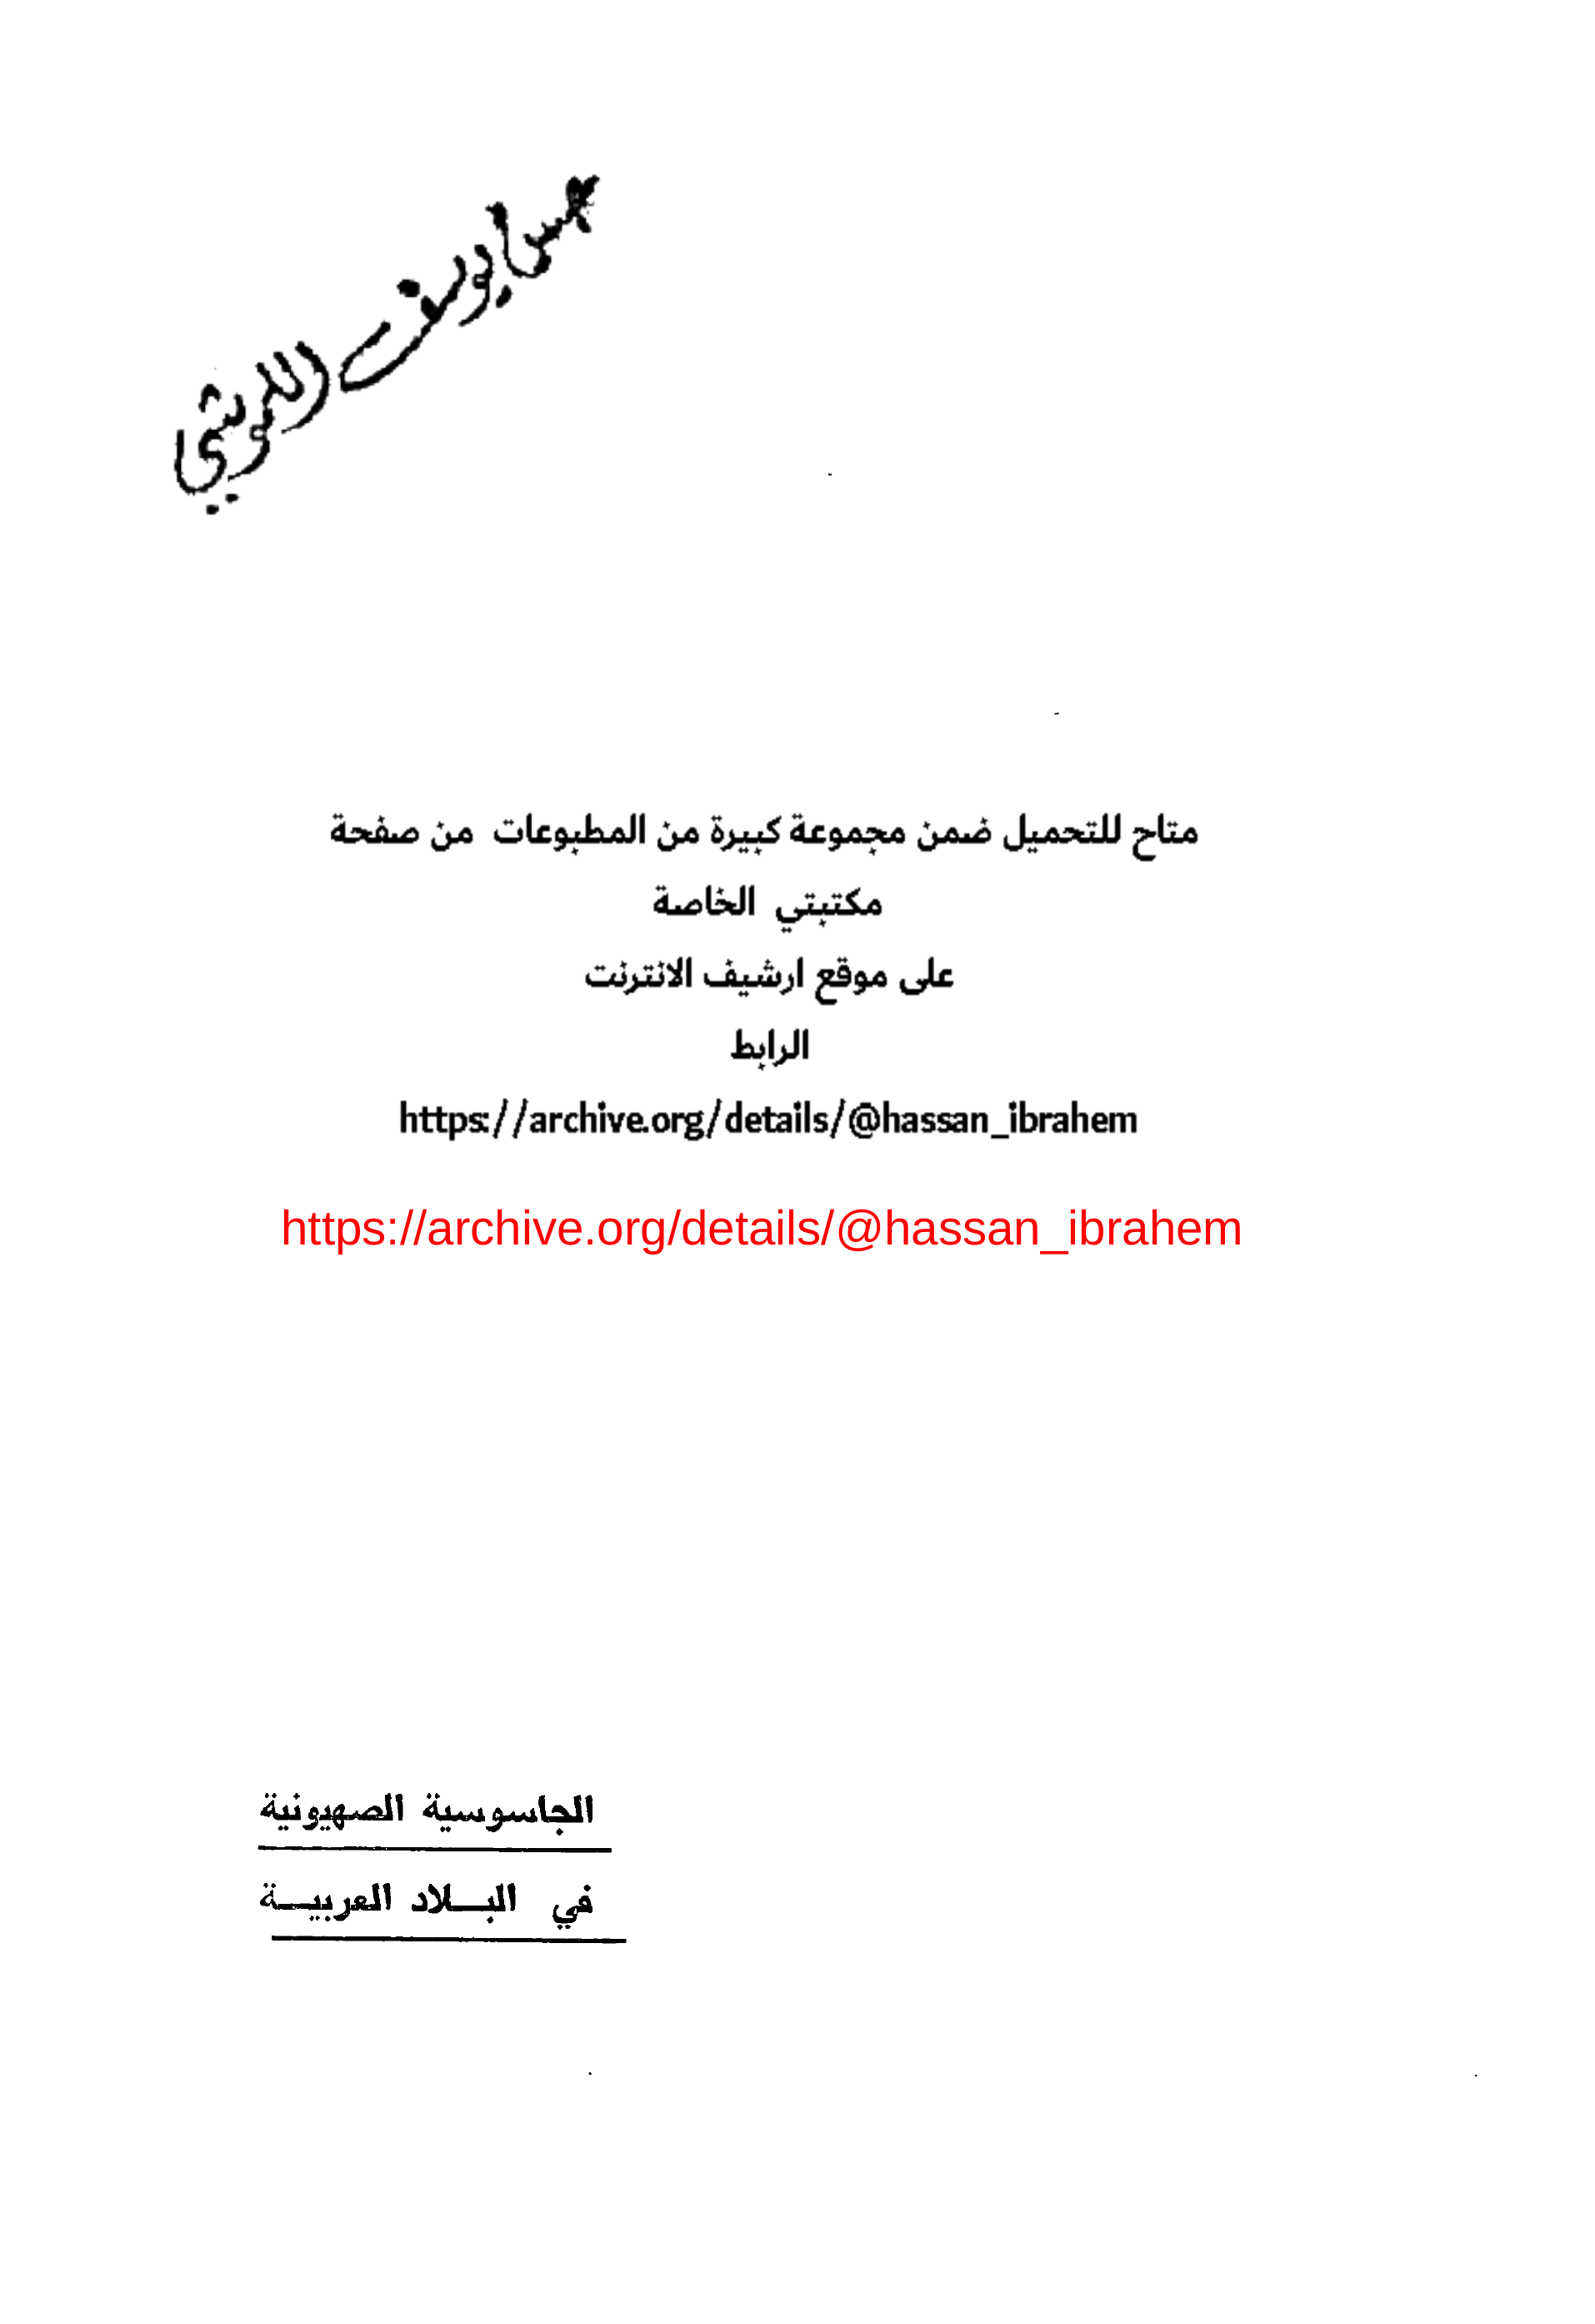 يوسف الكويتي
متاح للتحميل ضمن مجموعة كبيرة من المطبوعات من صفحة
مكتبتي الخاصة
على موقع ارشيف الانترنت
الرابط
https://archive.org/details/@hassan_ibrahem
https://archive.org/details/@hassan_ibrahem
الجاسوسية الصهيونية
في البـــلاد العربيـــة